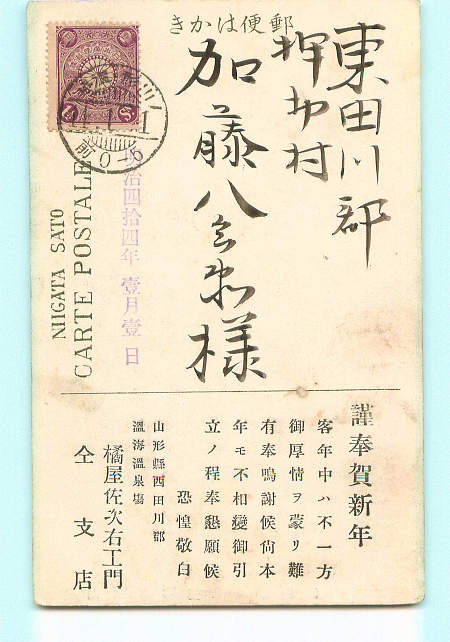 郵便はかき
東田川郡
押切村
加藤八三郎様
明治四拾四年 壹月壹日
NIIGATA SATO
CARTE POSTALE
謹奉賀新年
客年中ハ不一方
御厚情ヲ蒙リ難
有奉鳴謝候尙本
年モ不相變御引
立ノ程奉懇願候
恐惶敬白
山形縣西田川郡
溫海溫泉塲
橘屋佐次右エ門
仝支店